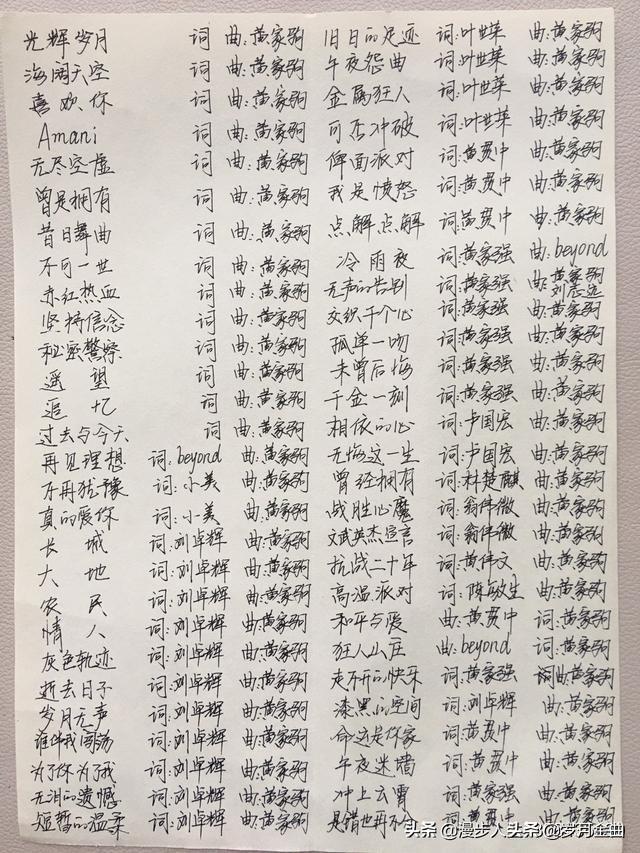 光辉岁月 词 曲:黄家驹
海阔天空 词 曲:黄家驹
喜欢你 词 曲:黄家驹
Amani 词 曲:黄家驹
无尽空虚 词 曲:黄家驹
曾是拥有 词 曲:黄家驹
昔日舞曲 词 曲:黄家驹
不可一世 词 曲:黄家驹
赤红热血 词 曲:黄家驹
坚持信念 词 曲:黄家驹
秘密警察 词 曲:黄家驹
遥望 词 曲:黄家驹
追忆 词 曲:黄家驹
过去与今天 词 曲:黄家驹
再见理想 词:beyond 曲:黄家驹
不再犹豫 词:小美 曲:黄家驹
真的爱你 词:小美 曲:黄家驹
长城 词:刘卓辉 曲:黄家驹
大地 词:刘卓辉 曲:黄家驹
农民 词:刘卓辉 曲:黄家驹
情人 词:刘卓辉 曲:黄家驹
灰色轨迹 词:刘卓辉 曲:黄家驹
逝去日子 词:刘卓辉 曲:黄家驹
岁月无声 词:刘卓辉 曲:黄家驹
谁伴我闯荡 词:刘卓辉 曲:黄家驹
为了你为了我 词:刘卓辉 曲:黄家驹
无泪的遗憾 词:刘卓辉 曲:黄家驹
短暂的温柔 词:刘卓辉 曲:黄家驹
旧日的足迹 词:叶世荣 曲:黄家驹
午夜怨曲 词:叶世荣 曲:黄家驹
金属狂人 词:叶世荣 曲:黄家驹
可否冲破 词:叶世荣 曲:黄家驹
俾面派对 词:黄贯中 曲:黄家驹
我是愤怒 词:黄贯中 曲:黄家驹
点解点解 词:黄贯中 曲:黄家驹
冷雨夜 词:黄家强 曲:beyond
无声的告别 词:黄家强 曲:黄家驹 刘志远
交织千个心 词:黄家强 曲:黄家驹
孤单一吻 词:黄家强 曲:黄家驹
未曾后悔 词:黄家强 曲:黄家驹
千金一刻 词:黄家强 曲:黄家驹
相依的心 词:卢国宏 曲:黄家驹
无悔这一生 词:卢国宏 曲:黄家驹
曾经拥有 词:林楚麒 曲:黄家驹
战胜心魔 词:翁伟微 曲:黄家驹
文武英杰宣言 词:翁伟微 曲:黄家驹
抗战二十年 词:黄伟文 曲:黄家驹
高温派对 词:陈敏生 曲:黄家驹
和平与爱 曲:黄贯中 词:黄家驹
狂人山庄 曲:beyond 词:黄家驹
走不开的快乐 词:黄家强 词曲:黄家驹
漆黑的空间 词:刘卓辉 曲:黄家驹
命运是你家 词:黄贯中 曲:黄家驹
午夜迷墙 词:黄贯中 曲:黄家驹
冲上云霄 词:黄家强 曲:黄家驹
是错也再不分 词:黄贯中 曲:黄家驹
头条 @漫步人
头条 @岁月金曲